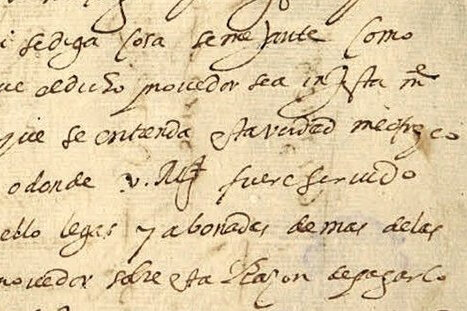 i se diga cosa semejante como
ue el dicho proveedor sea injusta mte
que se entienda esta verdad me ofrezco
o donde v. Magt fuere servido
ello legas y abonadas demas delas
proveedor sobre esta Razon depagarlo